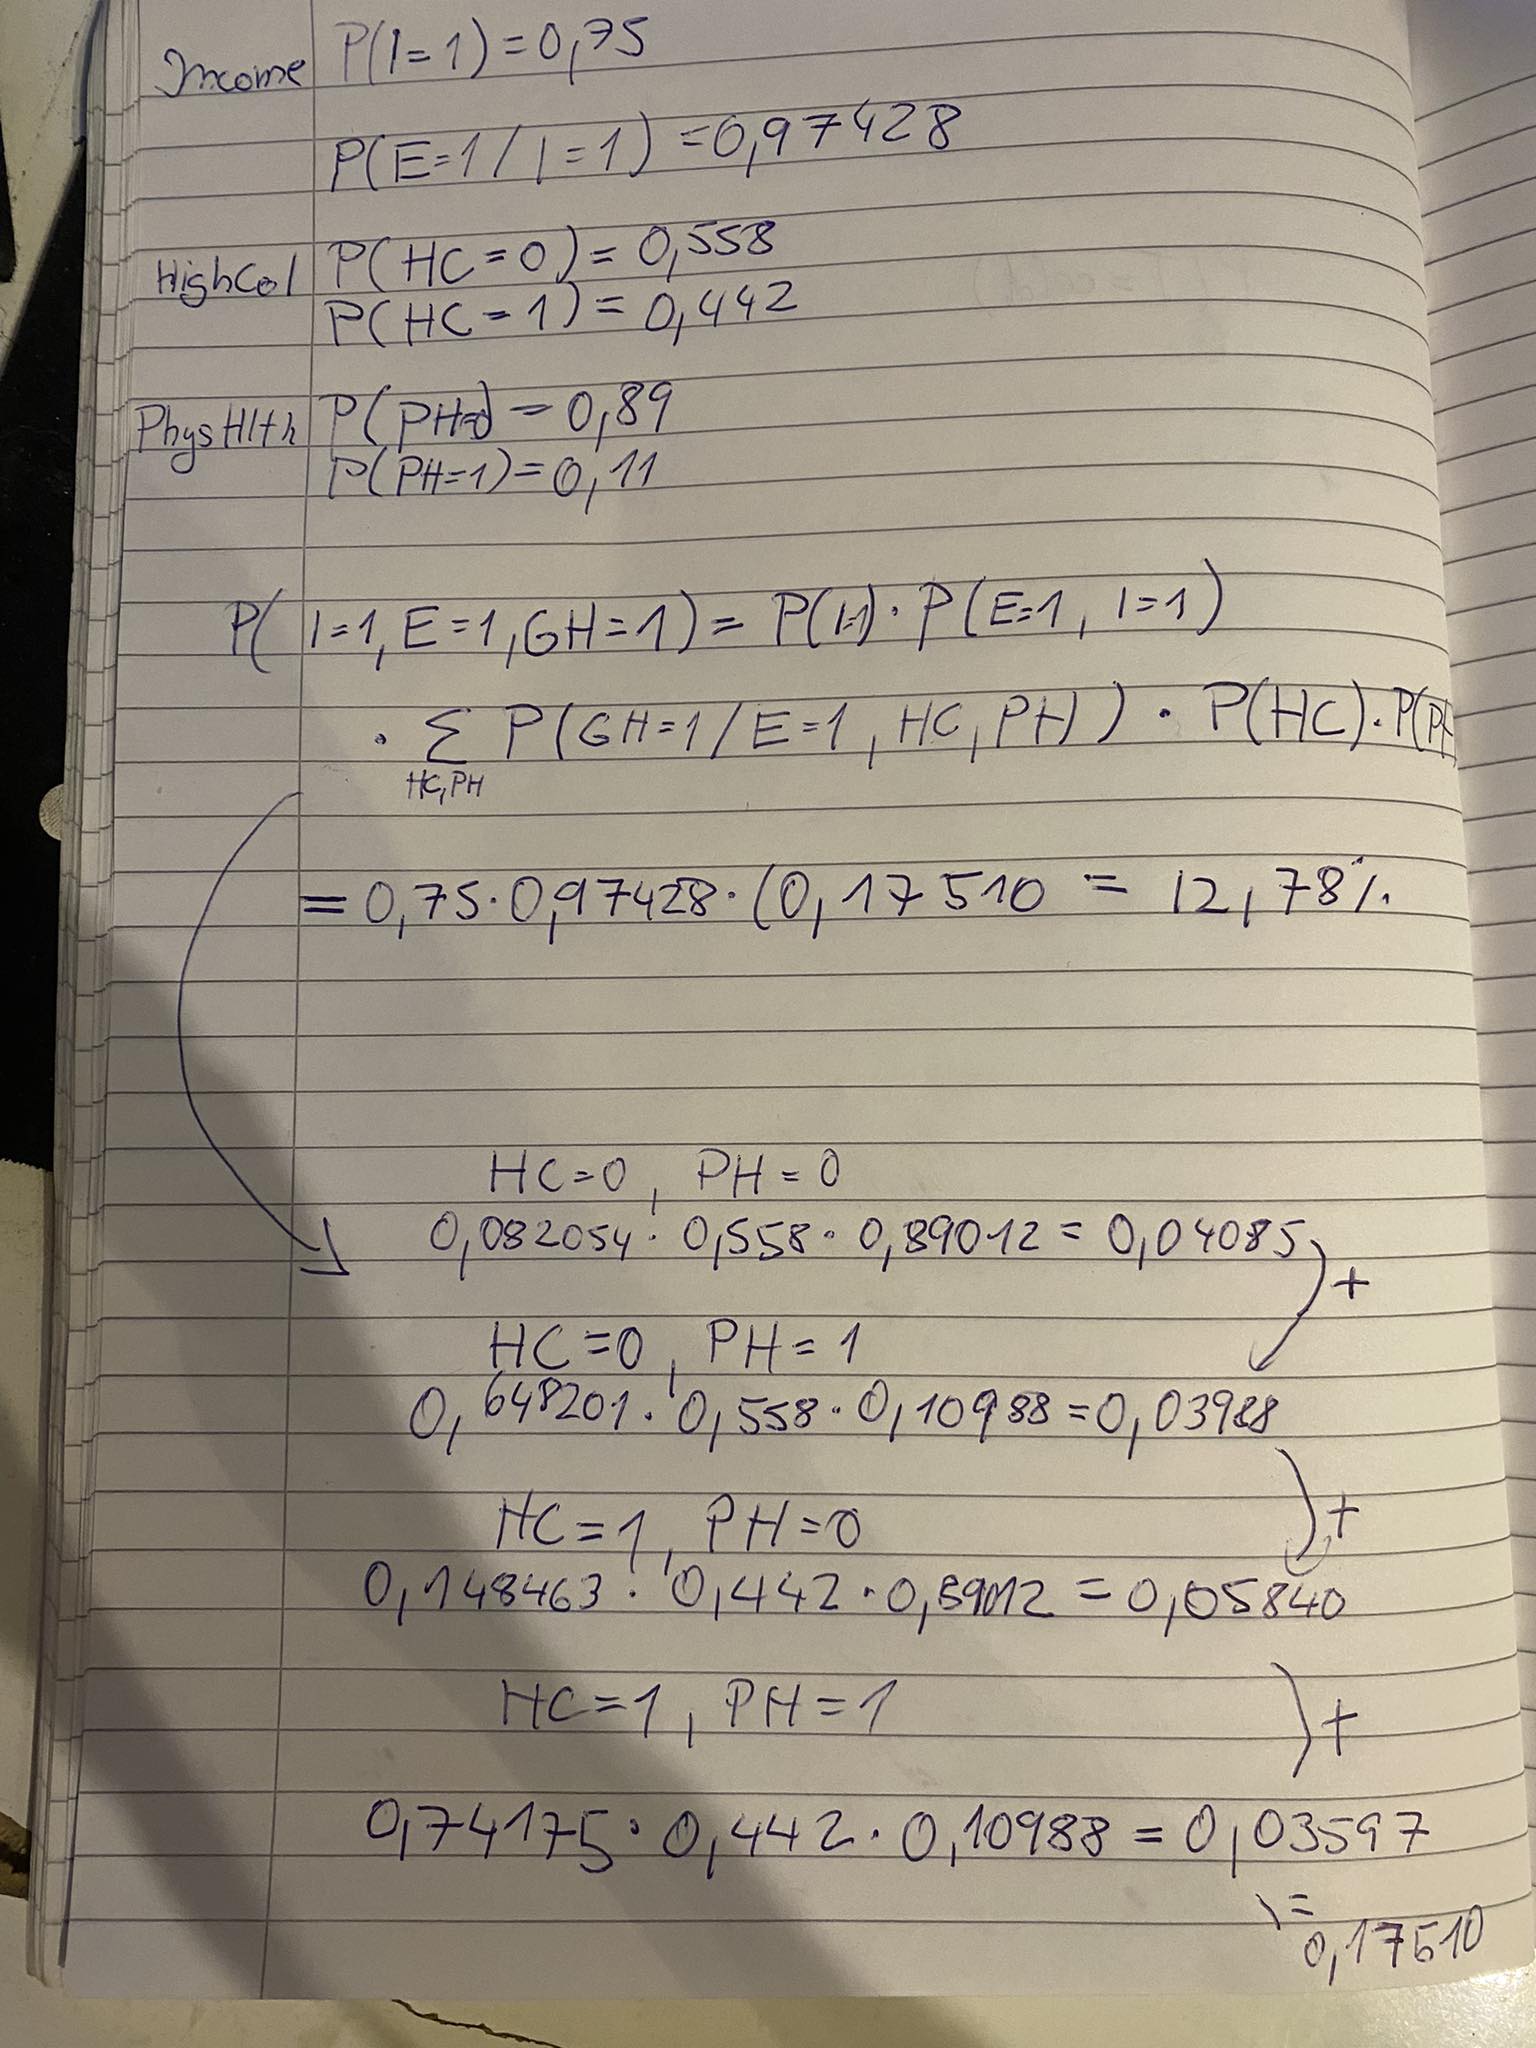 Income P(I=1)=0,75
P(E=1/I=1)=0,97428
HighCol P(HC=0)=0,558
P(HC=1)=0,442
PhysHlth P(PH=0)=0,89
P(PH=1)=0,11
P(I=1,E=1,GH=1)=P(I=1)·P(E=1,I=1)
·∑ P(GH=1/E=1,HC,PH)·P(HC)·P(PH
HC,PH
=0,75·0,97428·(0,17510 = 12,78%
HC=0, PH=0
0,082054·0,558·0,89012=0,04085
+
HC=0, PH=1
0,648201·0,558·0,10988=0,03988
+
HC=1, PH=0
0,148463·0,442·0,89012=0,05840
+
HC=1, PH=1
0,74175·0,442·0,10988=0,03597
=
0,17510